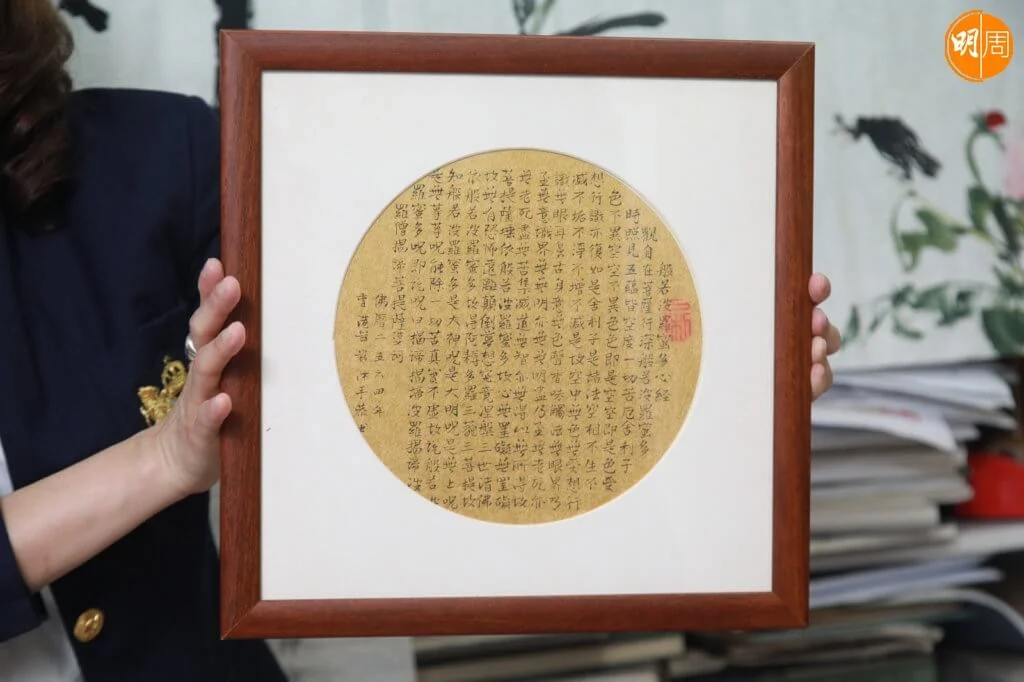 明周
般若波羅蜜多心經
觀自在菩薩行深般若波羅蜜多
時照見五蘊皆空度一切苦厄舍利子
色不異空空不異色色即是空空即是色受
想行識亦復如是舍利子是諸法空相不生不
滅不垢不淨不增不減是故空中無色無受想行
識無眼耳鼻舌身意無色聲香味觸法無眼界乃
至無意識界無無明亦無無明盡乃至無老死亦
無老死盡無苦集滅道無智亦無得以無所得故
菩提薩埵依般若波羅蜜多故心無罣礙無罣礙
故無有恐怖遠離顛倒夢想究竟涅槃三世諸佛
依般若波羅蜜多故得阿耨多羅三藐三菩提故
知般若波羅蜜多是大神呪是大明呪是無上呪
是無等等呪能除一切苦真實不虛故說般若波
羅蜜多呪即說呪曰揭諦揭諦波羅揭諦波
羅僧揭諦菩提薩婆訶
佛曆二五六四年
沐手敬書